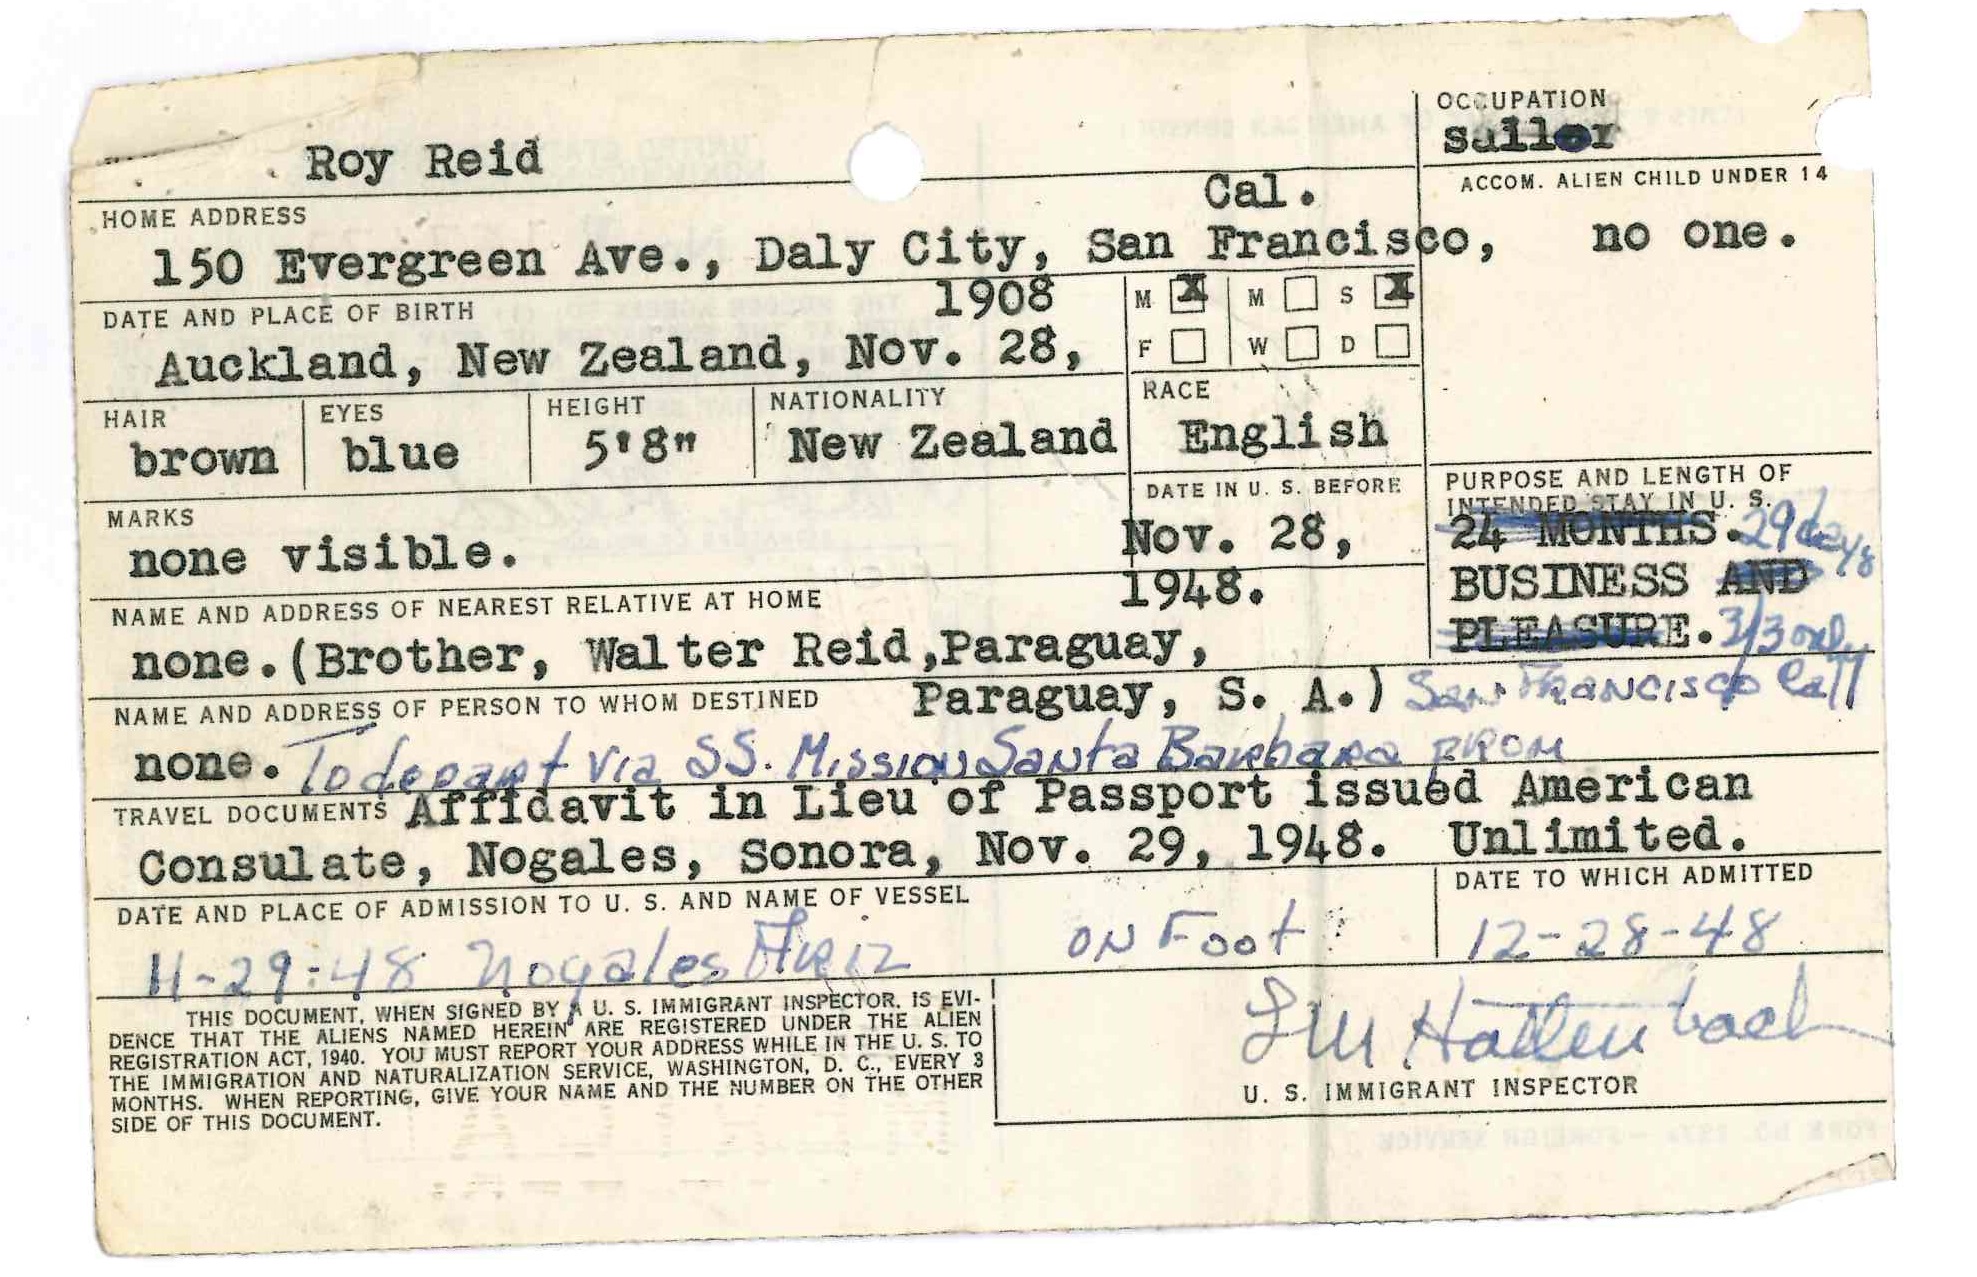 OCCUPATION
Roy Reid
sailor
ACCOM. ALIEN CHILD UNDER 14
no one.
HOME ADDRESS
Cal.
150 Evergreen Ave., Daly City, San Francisco,
DATE AND PLACE OF BIRTH
1908
Auckland, New Zealand, Nov. 28,
M X M S X
F W D
HAIR EYES HEIGHT NATIONALITY RACE
brown blue 5'8" New Zealand English
MARKS
none visible.
DATE IN U. S. BEFORE
Nov. 28,
1948.
PURPOSE AND LENGTH OF
INTENDED STAY IN U. S.
24 MONTHS. 29 days
BUSINESS AND
PLEASURE. 3/3 only
NAME AND ADDRESS OF NEAREST RELATIVE AT HOME
none.(Brother, Walter Reid,Paraguay,
Paraguay, S. A.)
NAME AND ADDRESS OF PERSON TO WHOM DESTINED
San Francisco Calif
none. To depart via SS. Mission Santa Barbara FROM
TRAVEL DOCUMENTS Affidavit in Lieu of Passport issued American
Consulate, Nogales, Sonora, Nov. 29, 1948. Unlimited.
DATE AND PLACE OF ADMISSION TO U. S. AND NAME OF VESSEL
11-29-48 Nogales Ariz ON Foot
DATE TO WHICH ADMITTED
12-28-48
THIS DOCUMENT, WHEN SIGNED BY A U. S. IMMIGRANT INSPECTOR, IS EVI-
DENCE THAT THE ALIENS NAMED HEREIN ARE REGISTERED UNDER THE ALIEN
REGISTRATION ACT, 1940. YOU MUST REPORT YOUR ADDRESS WHILE IN THE U. S. TO
THE IMMIGRATION AND NATURALIZATION SERVICE, WASHINGTON, D. C., EVERY 3
MONTHS. WHEN REPORTING, GIVE YOUR NAME AND THE NUMBER ON THE OTHER
SIDE OF THIS DOCUMENT.
U. S. IMMIGRANT INSPECTOR